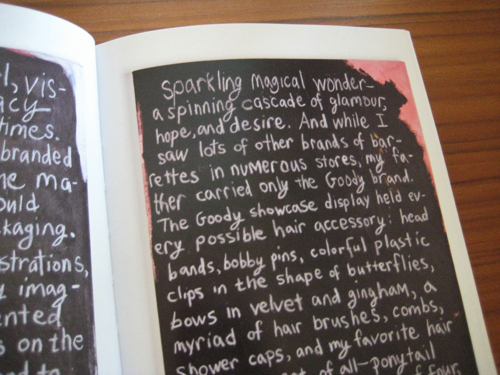 l, vis-
acy
times.
branded
ne ma-
ould
kaging.
strations,
y imag-
ented
s on the
nd to
Sparkling magical wonder-
a spinning cascade of glamour,
hope, and desire. And while I
saw lots of other brands of bar-
rettes in numerous stores, my fa-
ther carried only the Goody brand.
The Goody showcase display held ev-
ery possible hair accessory: head
bands, bobby pins, colorful plastic
clips in the shape of butterflies,
bows in velvet and gingham, a
myriad of hair brushes, combs,
shower caps, and my favorite hair
of all-ponytail
of four,